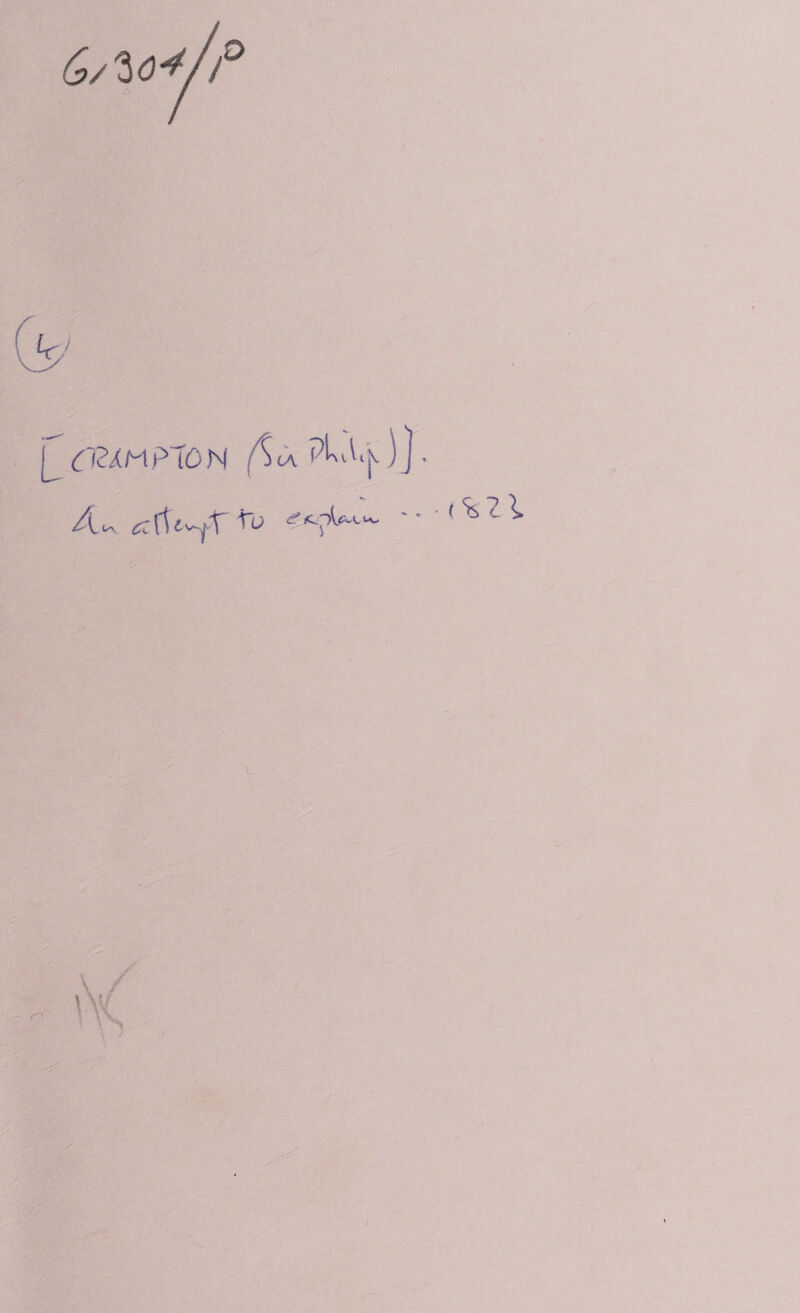 G/304/P
[CRAMPTON (Sir Philip)].
An attempt to explain ... 1822